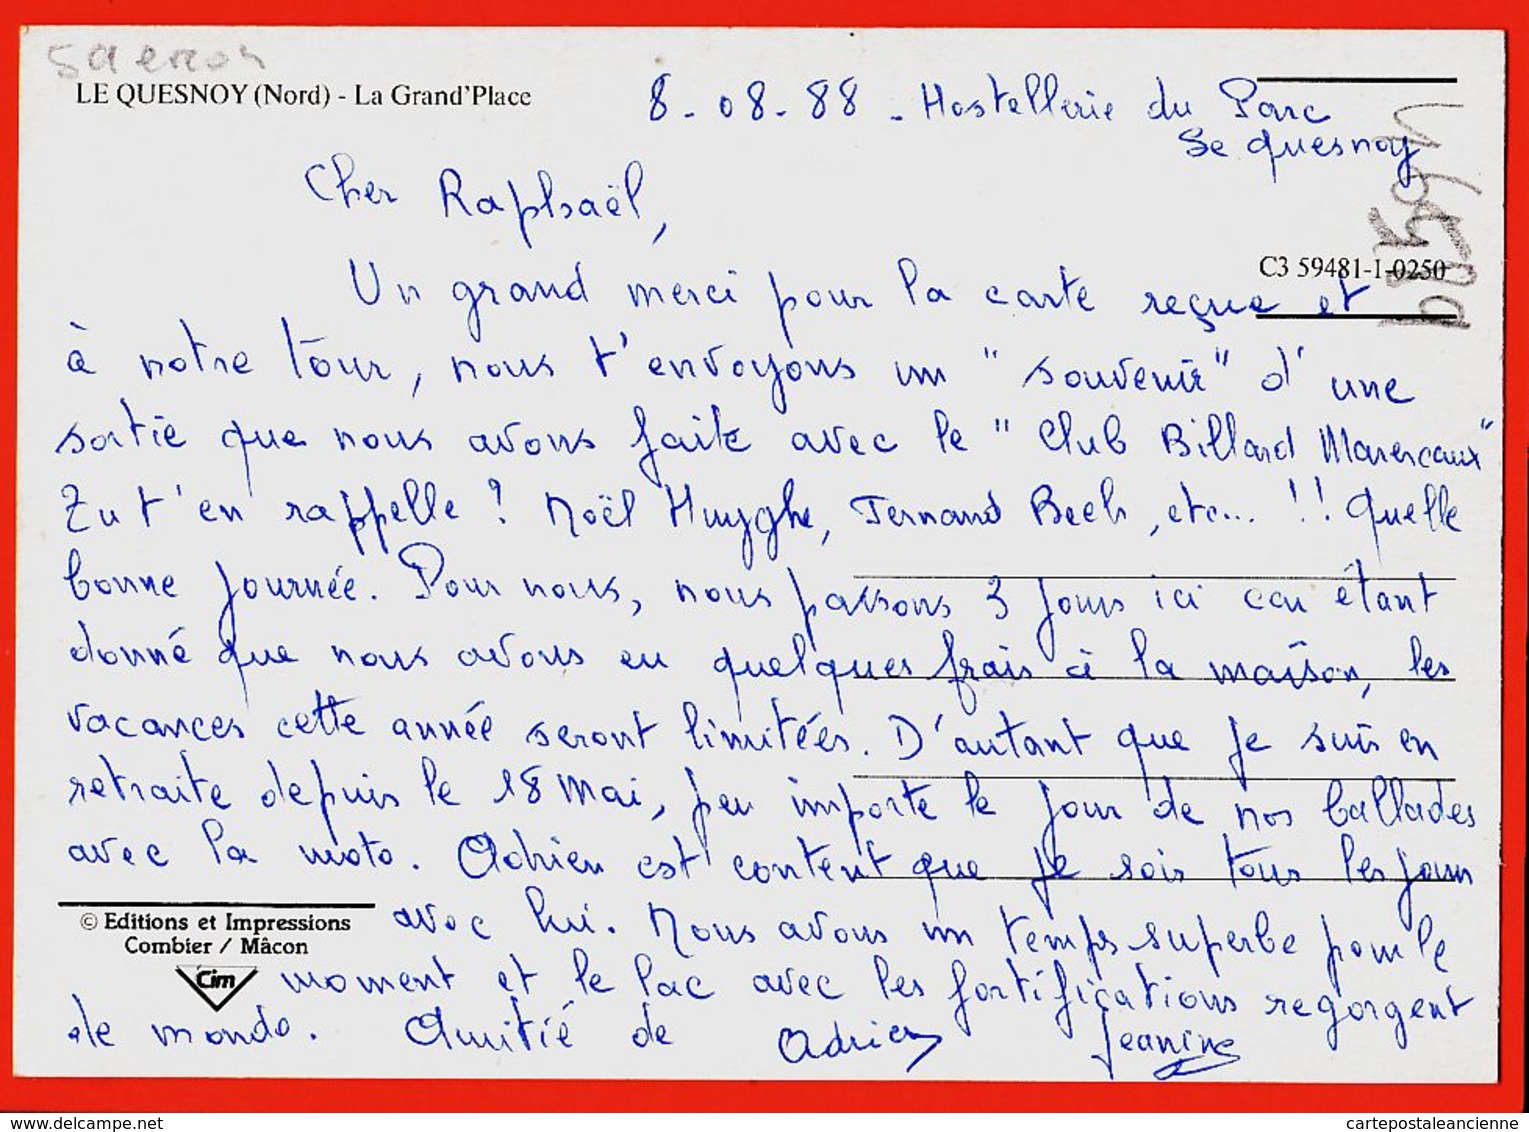 LE QUESNOY (Nord) - La Grand'Place
8-08-88 - Hostellerie du Parc
Le Quesnoy
Cher Raphaël,
C3 59481-1-0250
Un grand merci pour la carte reçue et
à notre tour, nous t'envoyons un "souvenir" d'une
sortie que nous avons faite avec le "Club Billard
Tu t'en rappelle? Noël Huyghe, Fernand etc... !! Quelle
bonne journée. Pour nous, nous passons 3 jours ici car étant
donné que nous avons eu quelques frais à la maison, les
vacances cette année seront limitées. D'autant que je suis en
retraite depuis le 18 Mai, peu importe le jour de nos ballades
avec la moto. Adrien est content que je sois tous les jours
avec lui. Nous avons un temps superbe pour le
moment et le lac avec les fortifications regorgent
de monde. Amitié de Adrien Jeanine
© Editions et Impressions
Combier / Mâcon
Cim
delcampe.net
cartepostaleancienne